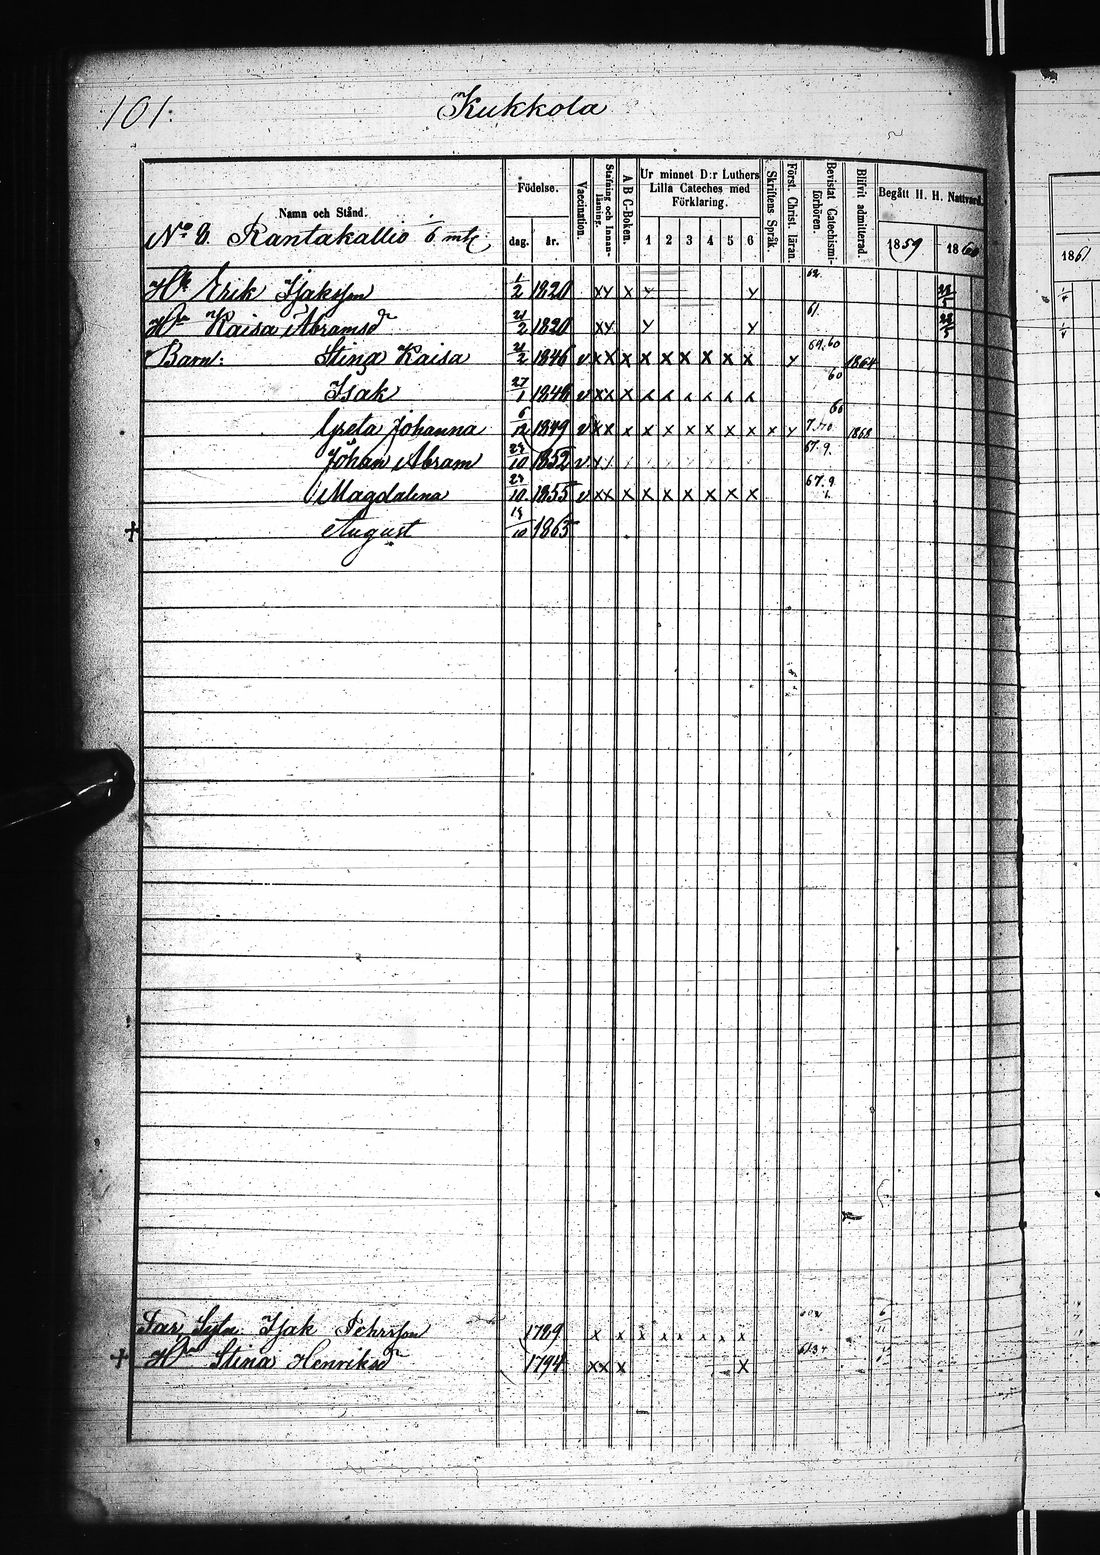 101.
Kukkola
Namn och Stånd. Födelse. dag. år. Vaccination. Stafning och Innanläsning. A B C-Boken. Ur minnet D:r Luthers Lilla Cateches med Förklaring. 1 2 3 4 5 6 Skriftens Språk. Först. Christ. läran. Bevistat Catechismiförhören. Blifvit admitterad. Begått H. H. Nattvard. 1859 1860 1861
No 8. Rantakallio 6 mtl.
Erik Isaksson 1/2 1820 xx x 62
Hu Kaisa Abramsdr 21/2 1820 xx 61
Barn: Stina Kaisa 21/2 1846 v xx x x x x x x x 59.60 1864
Isak 27/1 1848 v xx x 60
Greta Johanna 6/12 1849 v xx x x x x x x x x 60 1868
Johan Abram 10 1852 v 67.9.
Magdalena 10 1855 v xx x x x x x x x 67.9
+ August 10 1865
Far Isak Pehrsson 1789 x x x x x x x x
+ Hu Stina Henriksdr 1794 xx x x